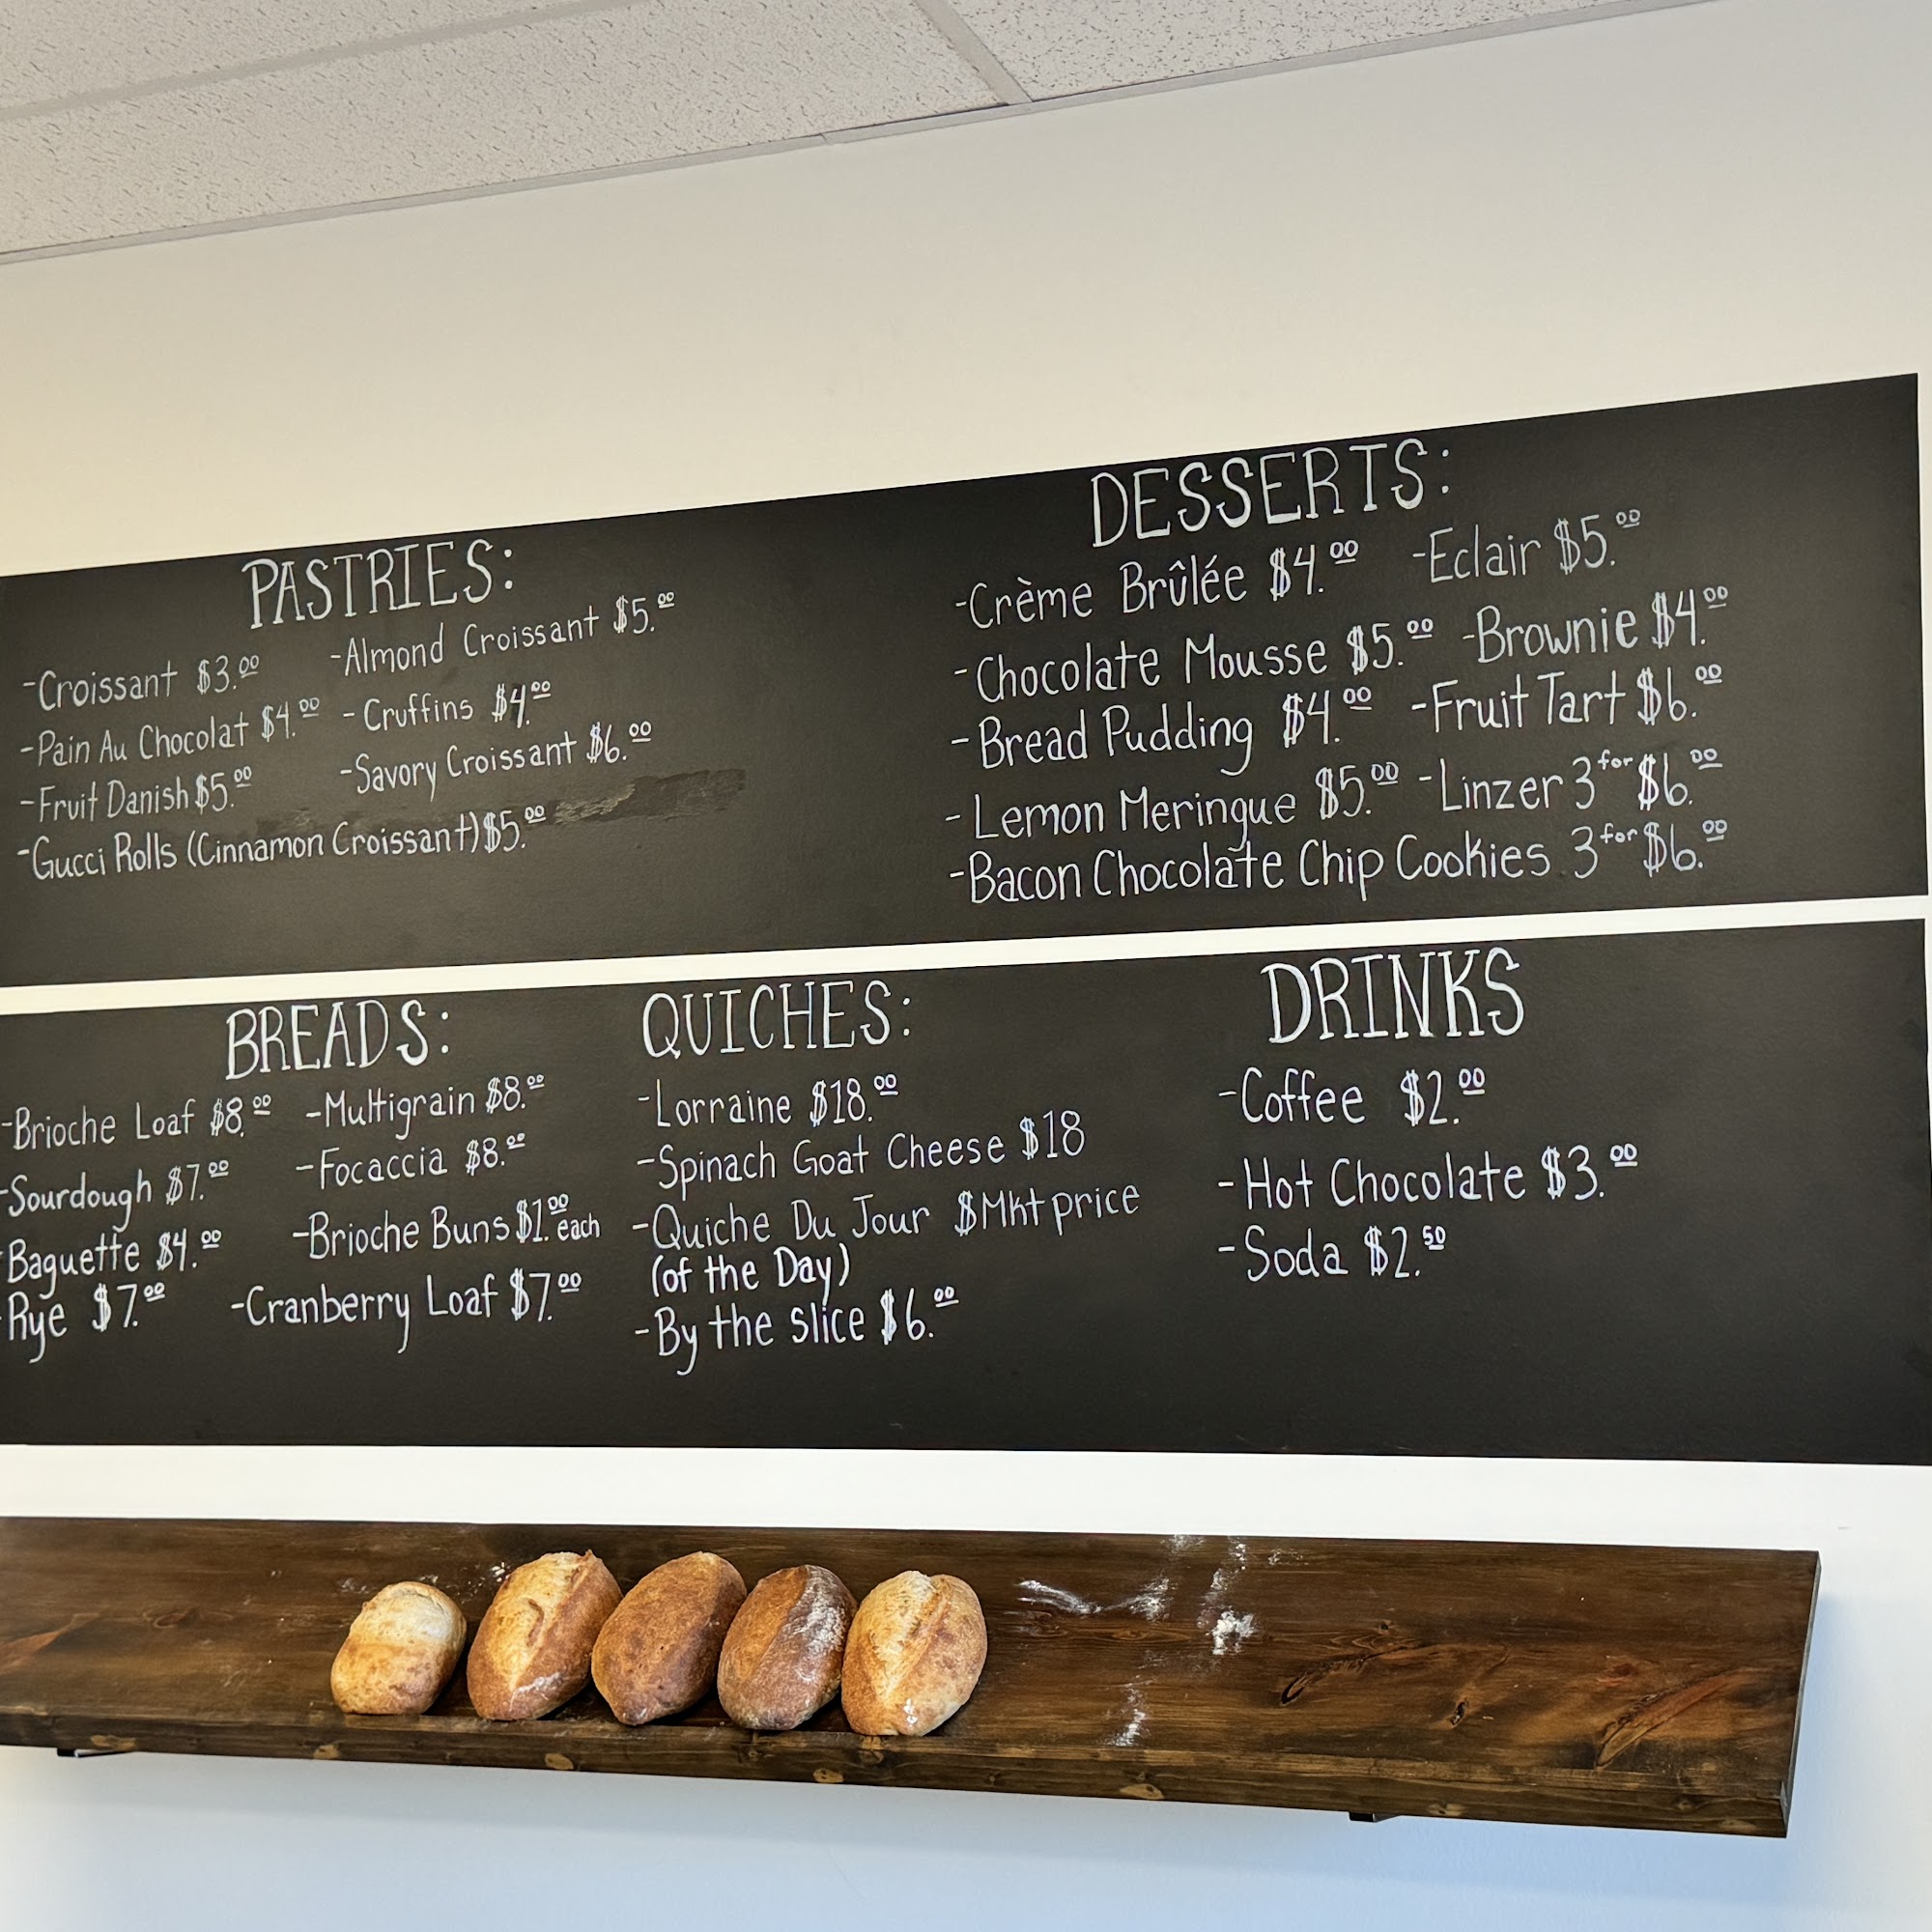 PASTRIES:
-Croissant $3.00 -Almond Croissant $5.00
-Pain Au Chocolat $4.00 -Cruffins $4.00
-Fruit Danish $5.00 -Savory Croissant $6.00
-Gucci Rolls (Cinnamon Croissant) $5.00
DESSERTS:
-Crème Brûlée $4.00 -Eclair $5.00
-Chocolate Mousse $5.00 -Brownie $4.00
-Bread Pudding $4.00 -Fruit Tart $6.00
-Lemon Meringue $5.00 -Linzer 3 for $6.00
-Bacon Chocolate Chip Cookies 3 for $6.00
BREADS:
-Brioche Loaf $8.00 -Multigrain $8.00
-Sourdough $7.00 -Focaccia $8.00
Baguette $4.00 -Brioche Buns $1.00 each
Rye $7.00 -Cranberry Loaf $7.00
QUICHES:
-Lorraine $18.00
-Spinach Goat Cheese $18
-Quiche Du Jour $Mkt price
(of the Day)
-By the slice $6.00
DRINKS
-Coffee $2.00
-Hot Chocolate $3.00
-Soda $2.50